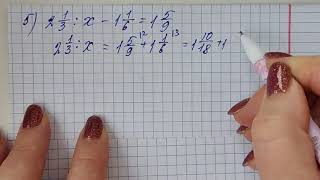 5) 2 1/3 : x - 1 1/6 = 1 5/9
2 1/3 : x = 1 5/9 ^12 + 1 1/6 ^13 = 1 10/18 + 1